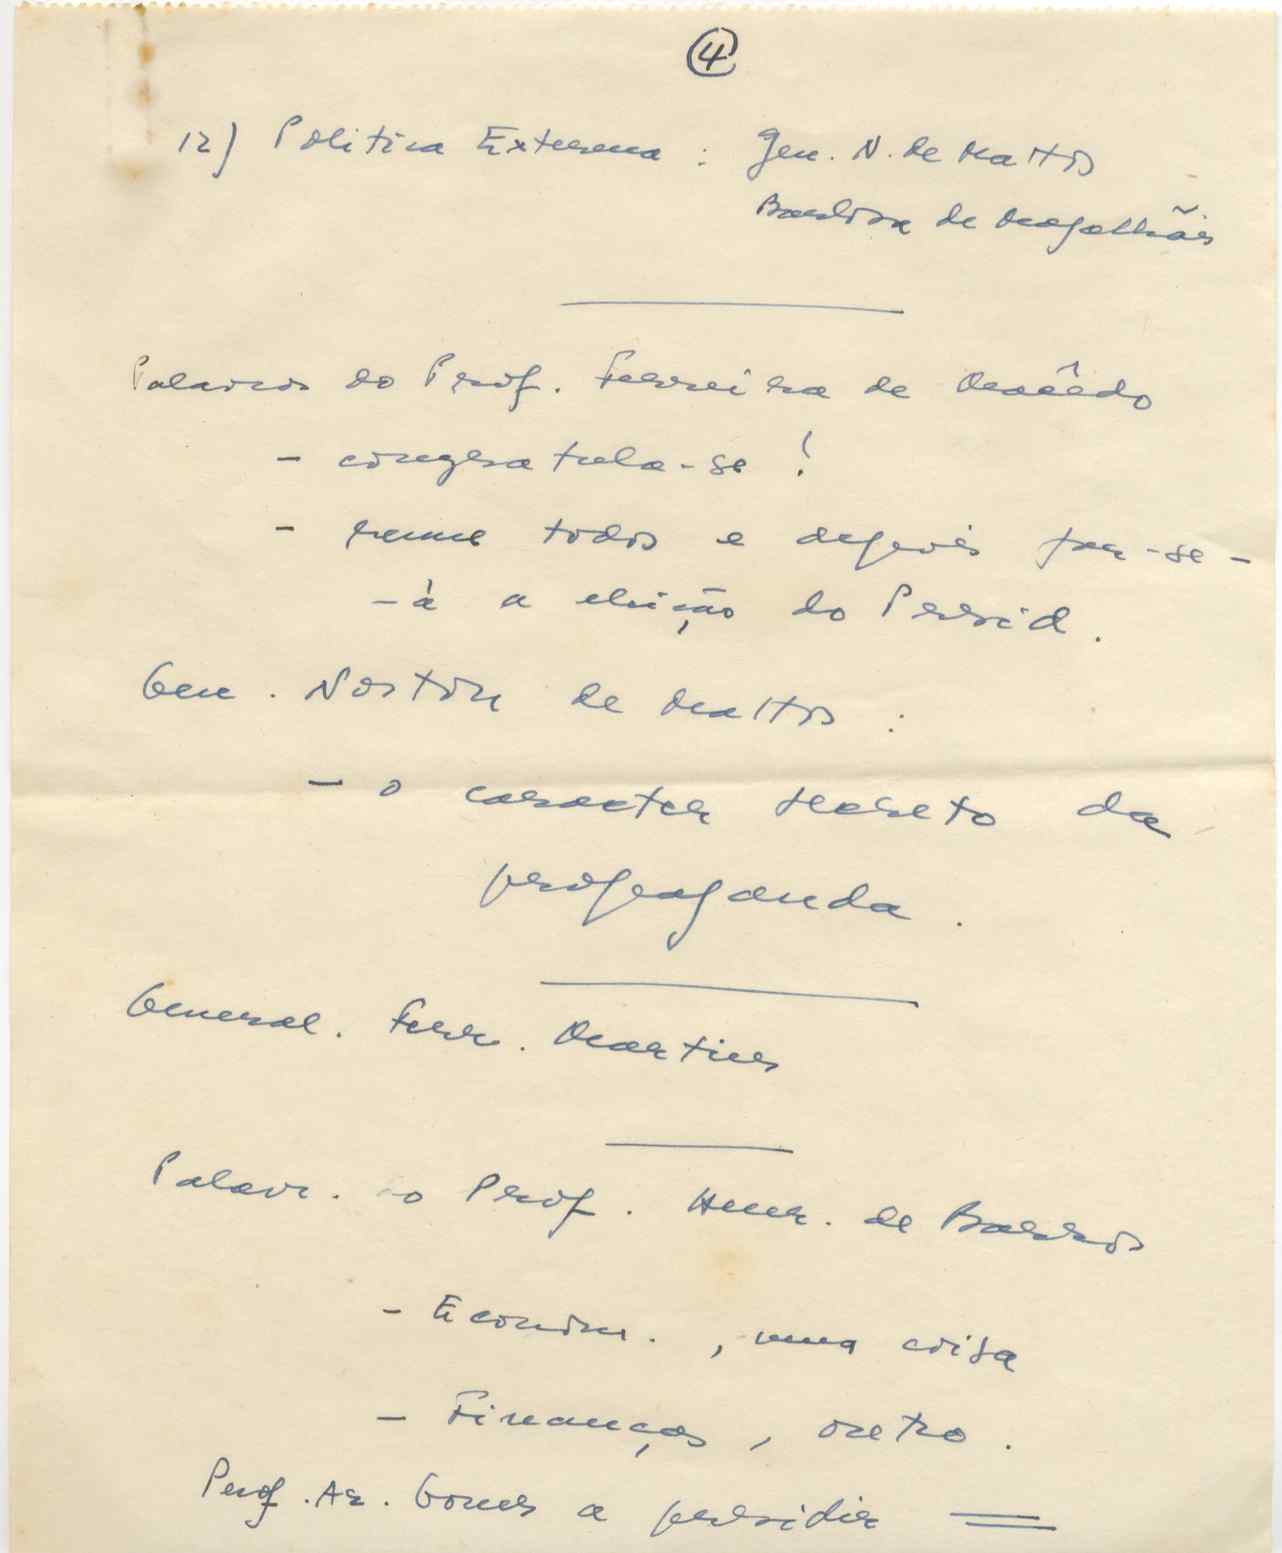 4
12) Politica Externa : Gen. N. de Mattos
Barbosa de Magalhães
Palavras do Prof. Ferreira de Macêdo
- congratula-se !
- reune todos e depois far-se-
-à a eleição do Presid.
Gen. Norton de Mattos :
- o caracter secreto da
propaganda.
General. Ferr. Martins
Palavr. o Prof. Henr. de Barros
- Econom. , uma coisa
- Finanças, outro.
Prof. Az. Gomes a presidir